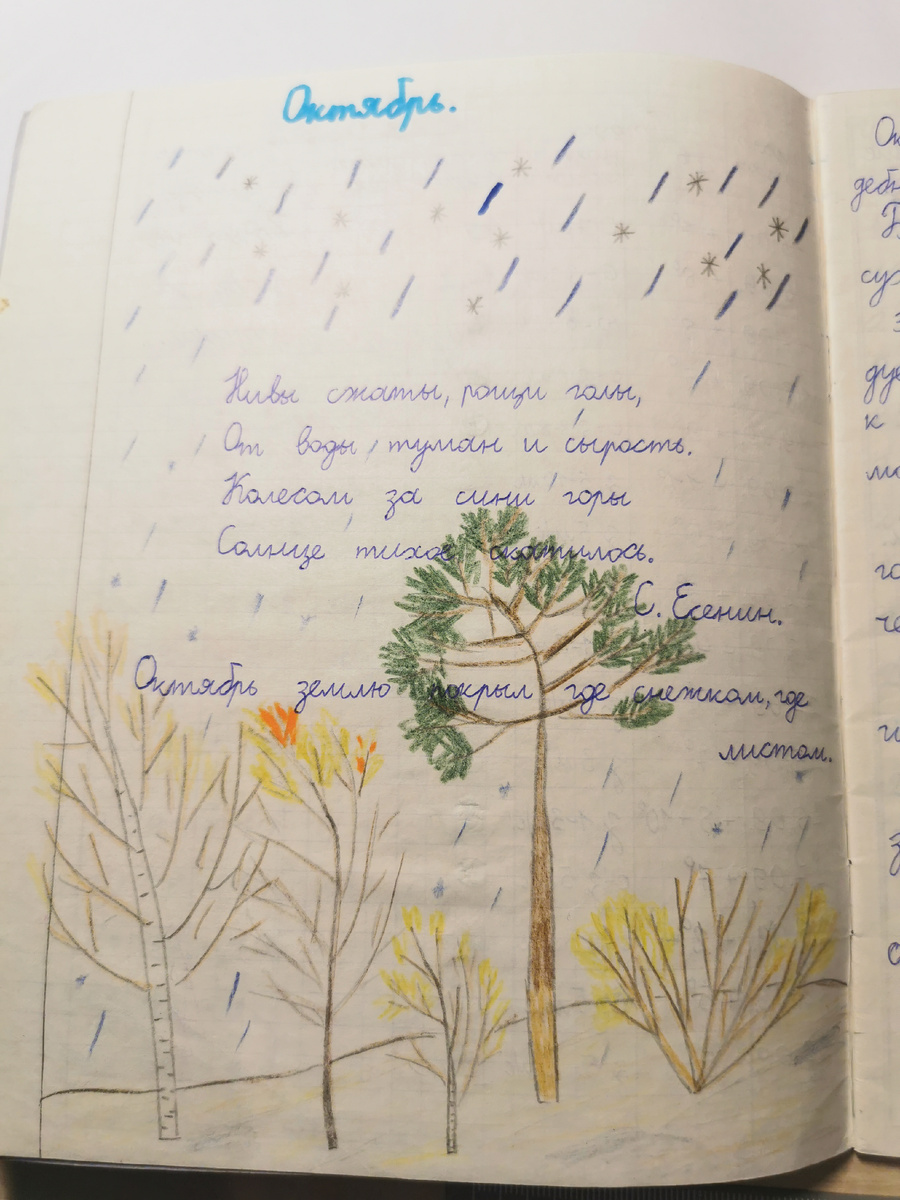 Октябрь.
Нивы сжаты, рощи голы,
От воды туман и сырость.
Колесом за сини горы
Солнце тихое скатилось.
С. Есенин.
Октябрь землю покрыл где снежком, где
листом.
к